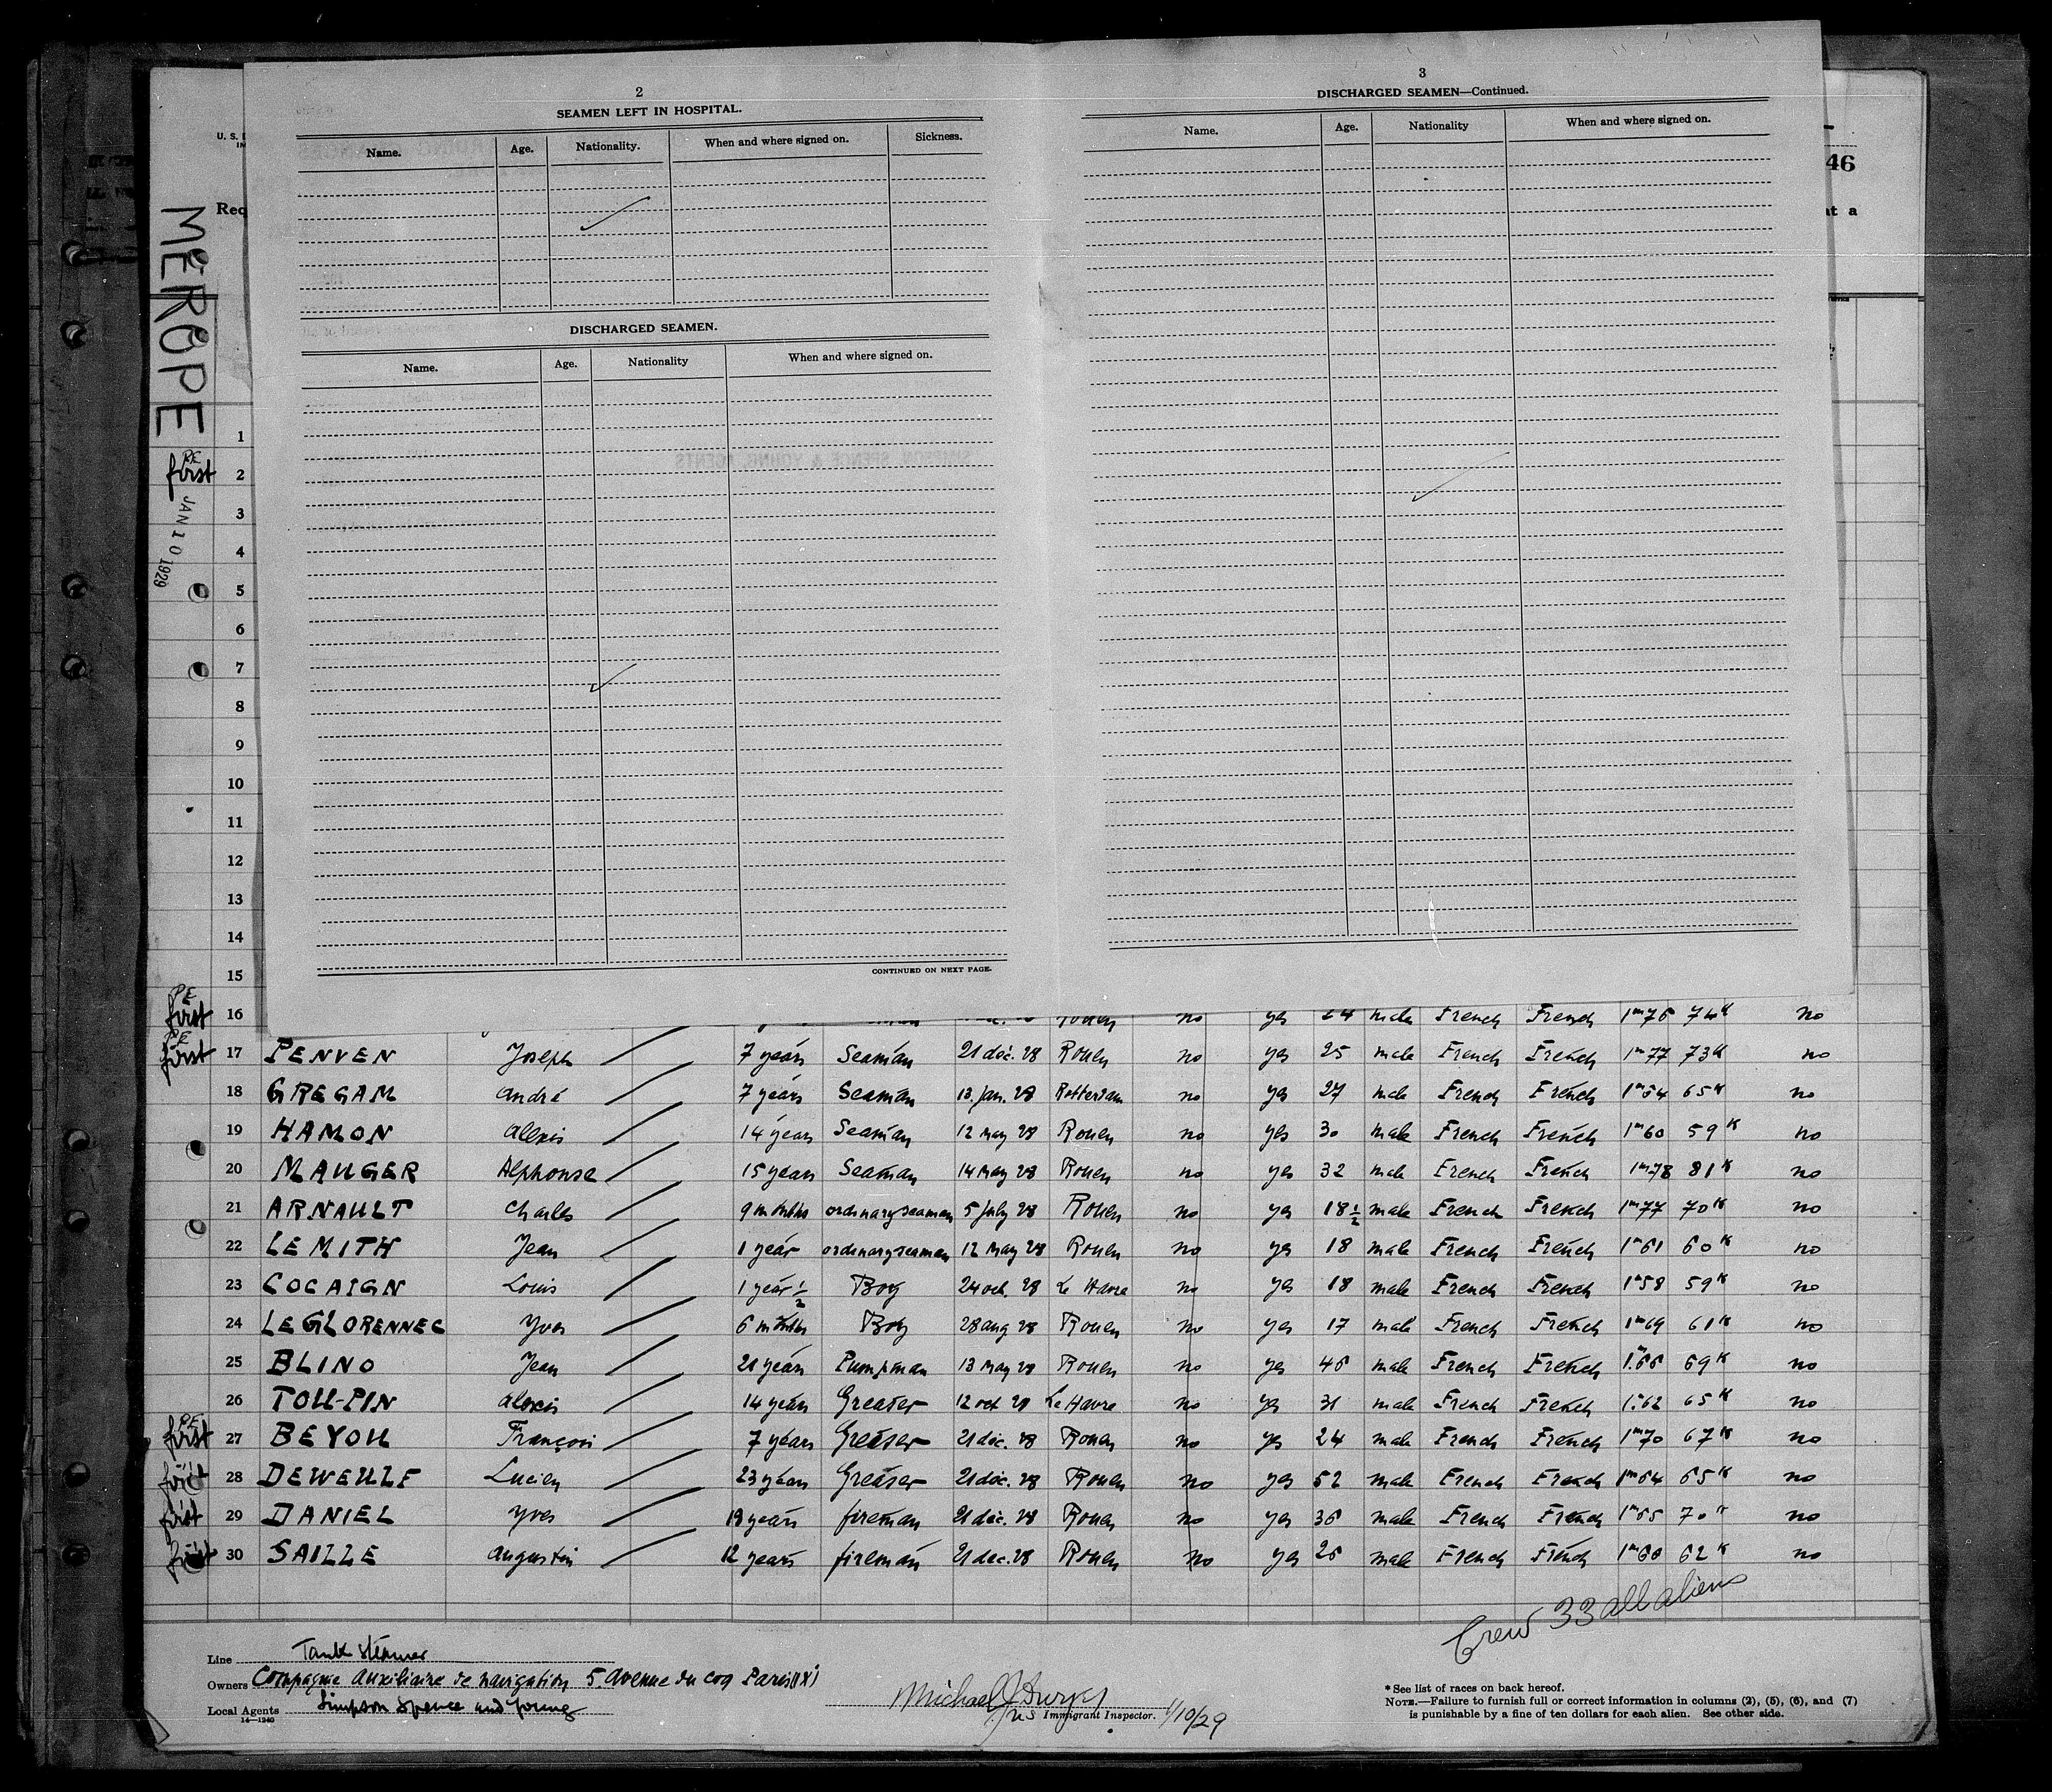 2
SEAMEN LEFT IN HOSPITAL.
Name. Age. Nationality. When and where signed on. Sickness.
DISCHARGED SEAMEN.
Name. Age. Nationality When and where signed on.
CONTINUED ON NEXT PAGE.
3
DISCHARGED SEAMEN—Continued.
Name. Age. Nationality When and where signed on.
46
U. S.
Req
at a
MEROPE
JAN 10 1929
1
PE
first 2
3
4
5
6
7
8
9
10
11
12
13
14
15
PE
first 16 Rouen no yes 24 male French French 1m76 74K no
PE
first 17 PENVEN Joseph 7 years Seaman 21 dec. 28 Rouen no yes 25 male French French 1m77 73K no
18 GREGAM André 7 years Seaman 13 jan. 28 Rotterdam no yes 27 male French French 1m64 65K no
19 HAMON Alexis 14 years Seaman 12 may 28 Rouen no yes 30 male French French 1m60 59K no
20 MAUGER Alphonse 15 years Seaman 14 may 28 Rouen no yes 32 male French French 1m78 81K no
21 ARNAULT Charles 9 months ordinary seaman 5 july 28 Rouen no yes 18½ male French French 1m77 70K no
22 LE MITH Jean 1 year ordinary seaman 12 may 28 Rouen no yes 18 male French French 1m61 60K no
23 COCAIGN Louis 1 year ½ Boy 24 oct. 28 Le Havre no yes 18 male French French 1m58 59K no
24 LE GLORENNEC Yves 6 months Boy 28 aug 28 Rouen no yes 17 male French French 1m69 61K no
25 BLINO Jean 21 years Pumpman 13 may 28 Rouen no yes 46 male French French 1m66 69K no
26 TOUL-PIN Alexis 14 years Greaser 12 oct 28 Le Havre no yes 31 male French French 1m62 65K no
PE
first 27 BEYOU François 7 years Greaser 21 dec. 28 Rouen no yes 24 male French French 1m70 67K no
first 28 DEWEULF Lucien 23 years Greaser 21 dec. 28 Rouen no yes 52 male French French 1m64 65K no
first 29 DANIEL Yves 19 years fireman 21 dec. 28 Rouen no yes 36 male French French 1m65 70K no
first 30 SAILLE Augustin 12 years fireman 21 dec. 28 Rouen no yes 26 male French French 1m60 62K no
Crew 33 all aliens
Line Tank Steamer
Owners Compagnie Auxiliaire de navigation 5 avenue du coq Paris (IX)
Local Agents Simpson Spence and Young
14—1240
Michael J
Immigrant Inspector. 1/10/29
* See list of races on back hereof.
NOTE.—Failure to furnish full or correct information in columns (2), (5), (6), and (7)
is punishable by a fine of ten dollars for each alien. See other side.